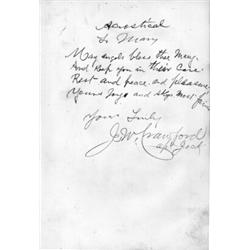 Acrostical
to Mary
May angels bless thee Mary.
And Keep you in their Care
Rest and peace and pleasure
Yours Joys and skys most fair
Yours Truly
J. W. Crawford
Capt Jack